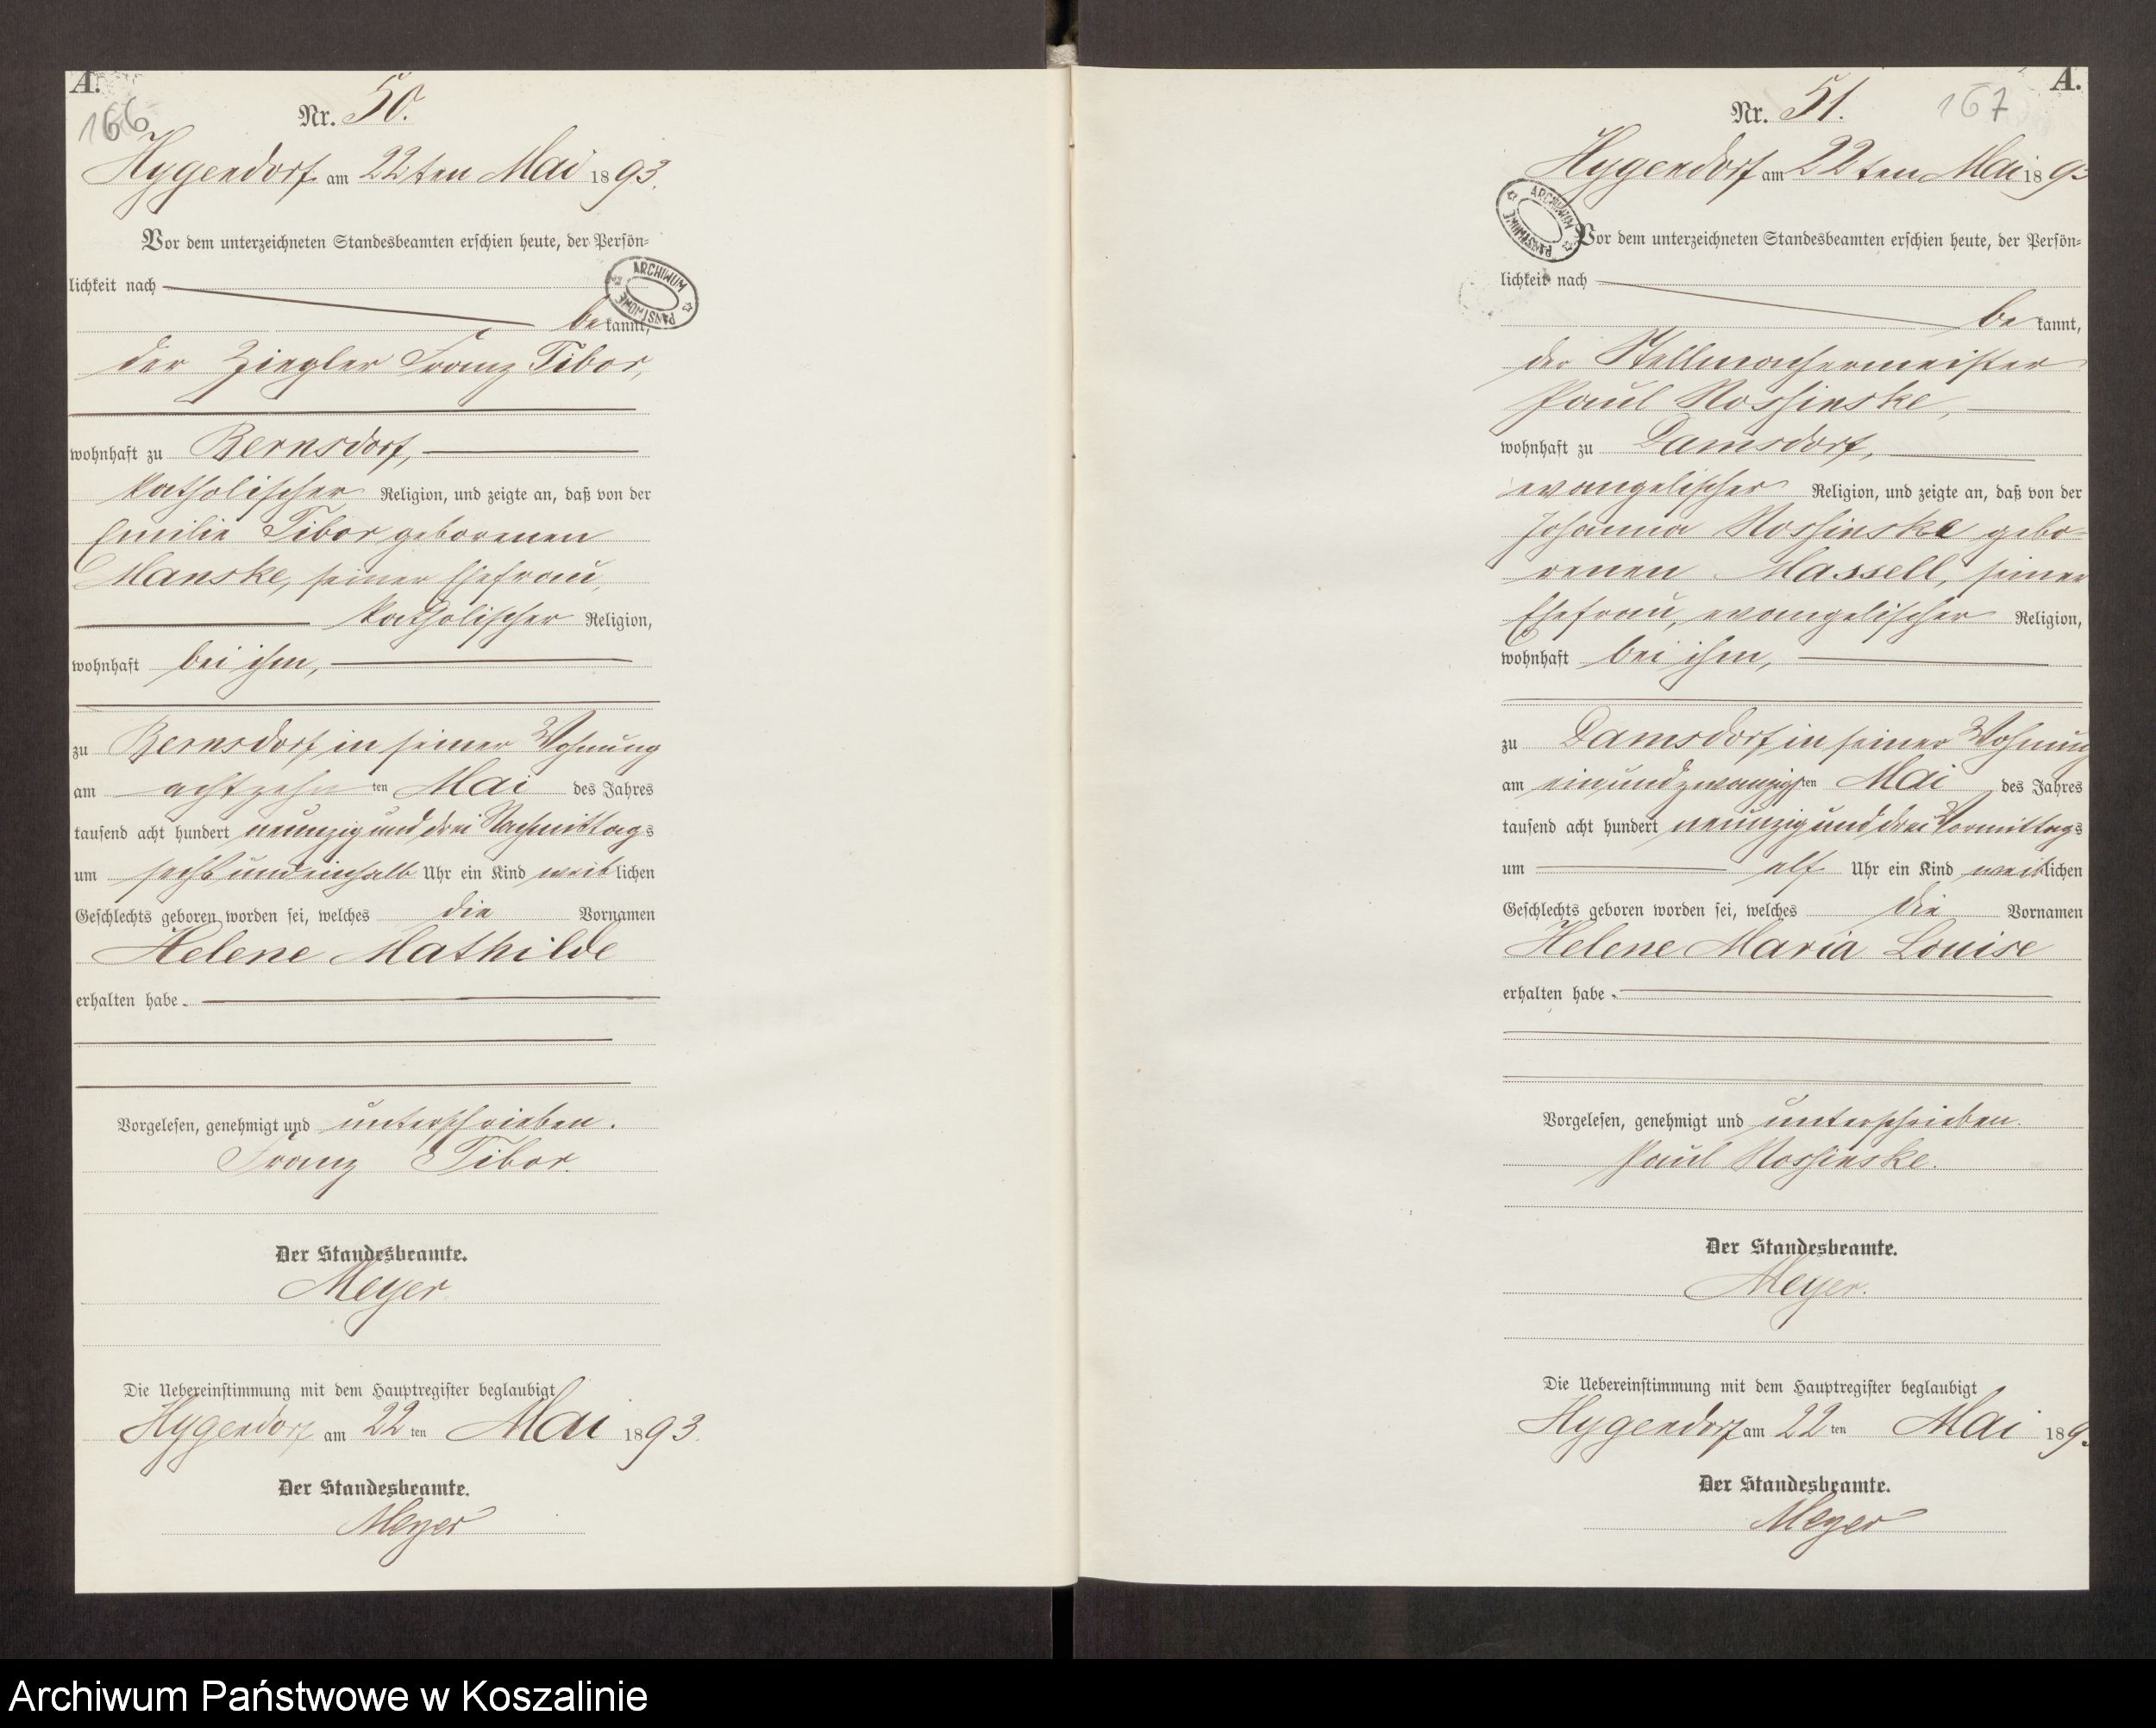 A.
166
Nr. 50.
Hygendorf am 22ten Mai 1893.
Vor dem unterzeichneten Standesbeamten erschien heute, der Persön-
lichkeit nach
bekannt,
der Ziegler Franz Tibor,
wohnhaft zu Bernsdorf,
katholischer Religion, und zeigte an, daß von der
Emilie Tibor geborenen
Manske, seiner Ehefrau,
katholischer Religion,
wohnhaft bei ihm,
zu Bernsdorf, in seiner Wohnung
am achtzehnten Mai des Jahres
tausend acht hundert neunzig und drei Nachmittags
um sechs und einhalb Uhr ein Kind weiblichen
Geschlechts geboren worden sei, welches die Vornamen
Helene Mathilde
erhalten habe.
Vorgelesen, genehmigt und unterschrieben.
Franz Tibor.
Der Standesbeamte.
Meyer
Die Uebereinstimmung mit dem Hauptregister beglaubigt
Hygendorf am 22ten Mai 1893.
Der Standesbeamte.
Meyer
ARCHIWUM PAŃSTWOWE
A.
167
Nr. 51.
Hygendorf am 22ten Mai 1893
Vor dem unterzeichneten Standesbeamten erschien heute, der Persön-
lichkeit nach
bekannt,
der Stellmachermeister
Paul Noffinske,
wohnhaft zu Damsdorf,
evangelischer Religion, und zeigte an, daß von der
Johanna Noffinske gebo-
renen Massell, seiner
Ehefrau, evangelischer Religion,
wohnhaft bei ihm,
zu Damsdorf, in seiner Wohnung
am einundzwanzigsten Mai des Jahres
tausend acht hundert neunzig und drei Vormittags
um elf Uhr ein Kind weiblichen
Geschlechts geboren worden sei, welches die Vornamen
Helene Maria Louise
erhalten habe.
Vorgelesen, genehmigt und unterschrieben.
Paul Noffinske.
Der Standesbeamte.
Meyer.
Die Uebereinstimmung mit dem Hauptregister beglaubigt
Hygendorf am 22ten Mai 189
Der Standesbeamte.
Meyer
ARCHIWUM PAŃSTWOWE
Archiwum Państwowe w Koszalinie